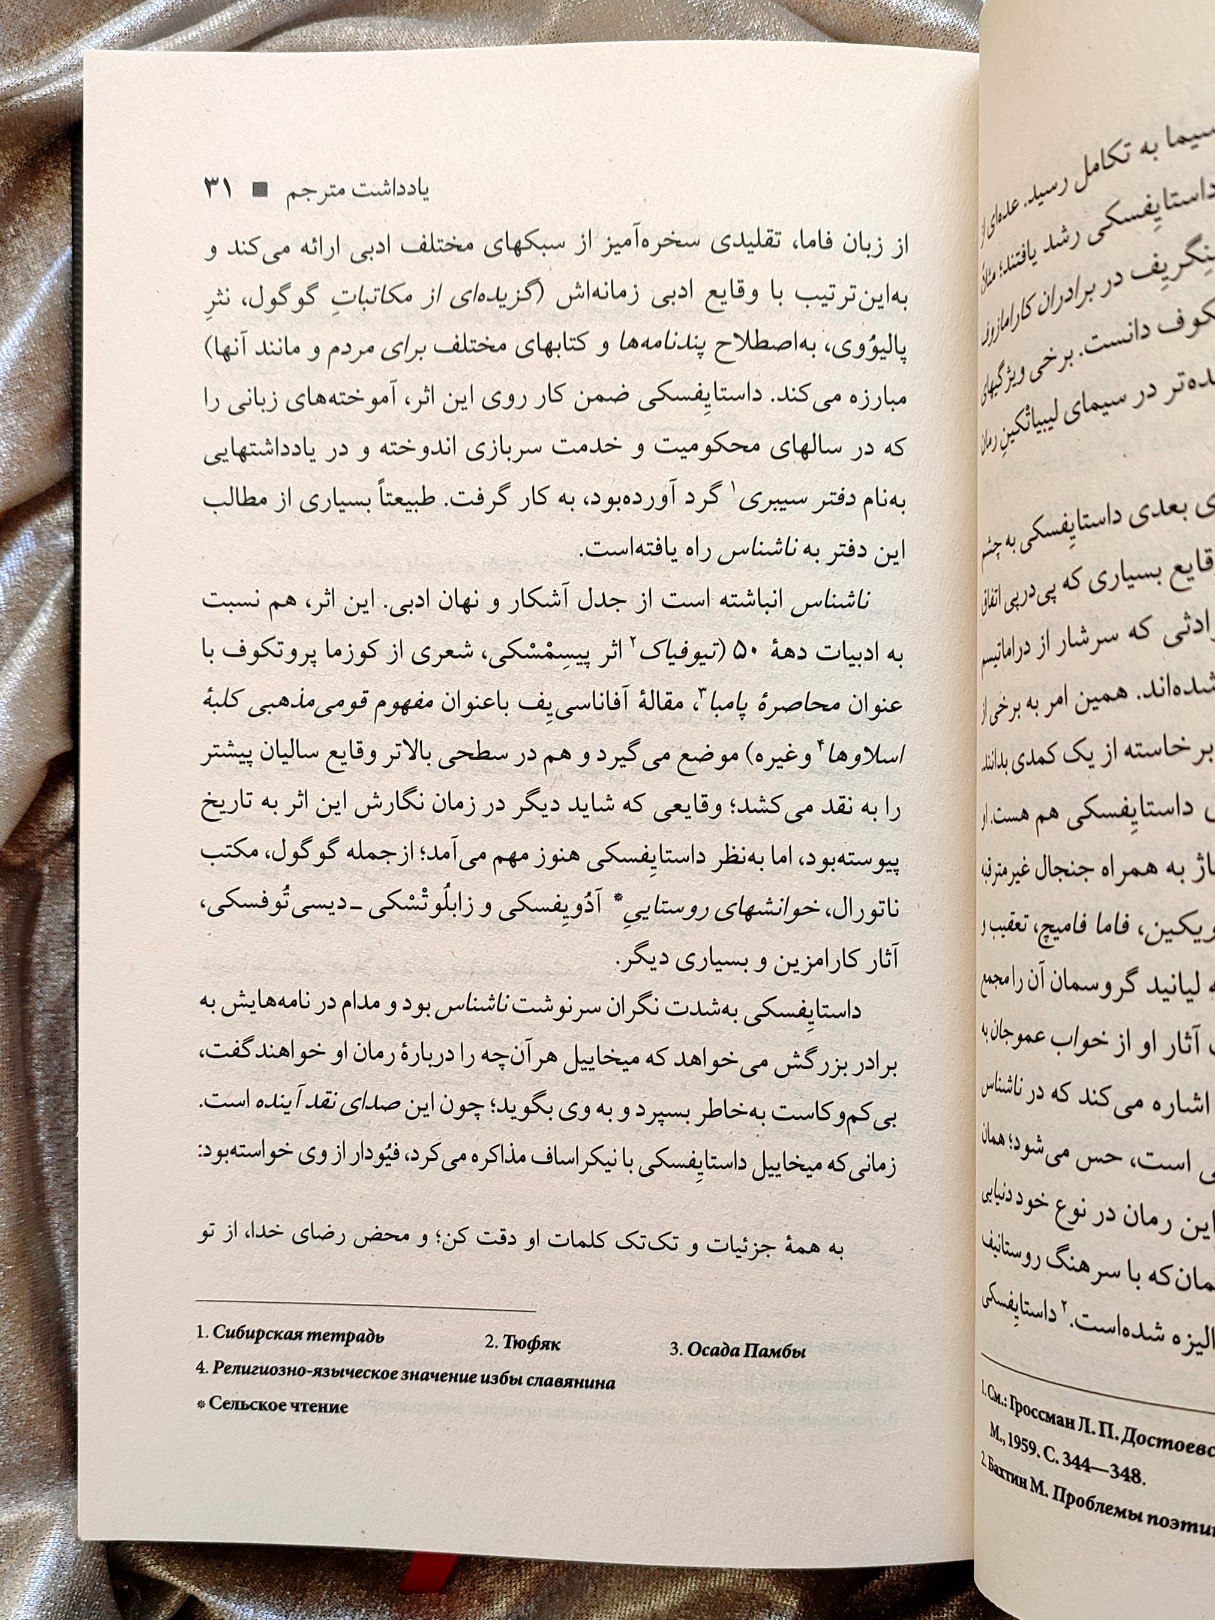 یادداشت مترجم ■ ۳۱
از زبان فاما، تقلیدی سخره‌آمیز از سبکهای مختلف ادبی ارائه می‌کند و
به‌این‌ترتیب با وقایع ادبی زمانه‌اش (گزیده‌ای از مکاتباتِ گوگول، نثرِ
پالیوُوی، به‌اصطلاح پندنامه‌ها و کتابهای مختلف برای مردم و مانند آنها)
مبارزه می‌کند. داستایِفسکی ضمن کار روی این اثر، آموخته‌های زبانی را
که در سالهای محکومیت و خدمت سربازی اندوخته و در یادداشتهایی
به‌نام دفتر سیبری۱ گرد آورده‌بود، به کار گرفت. طبیعتاً بسیاری از مطالب
این دفتر به ناشناس راه یافته‌است.
ناشناس انباشته است از جدل آشکار و نهان ادبی. این اثر، هم نسبت
به ادبیات دههٔ ۵۰ (تیوفیاک۲ اثر پیسِمْسْکی، شعری از کوزما پروتکوف با
عنوان محاصرهٔ پامبا۳، مقالهٔ آفاناسی‌یِف باعنوان مفهوم قومی‌مذهبی کلبهٔ
اسلاوها۴ وغیره) موضع می‌گیرد و هم در سطحی بالاتر وقایع سالیان پیشتر
را به نقد می‌کشد؛ وقایعی که شاید دیگر در زمان نگارش این اثر به تاریخ
پیوسته‌بود، اما به‌نظر داستایِفسکی هنوز مهم می‌آمد؛ ازجمله گوگول، مکتب
ناتورال، خوانشهای روستاییِ* آدُویِفسکی و زابلُوتْسْکی ـ‌دیسی‌تُوفسکی،
آثار کارامزین و بسیاری دیگر.
داستایِفسکی به‌شدت نگران سرنوشت ناشناس بود و مدام در نامه‌هایش به
برادر بزرگش می‌خواهد که میخاییل هرآن‌چه را دربارهٔ رمان او خواهندگفت،
بی‌کم‌وکاست به‌خاطر بسپرد و به وی بگوید؛ چون این صدای نقد آینده است.
زمانی‌که میخاییل داستایِفسکی با نیکراساف مذاکره می‌کرد، فیُودار از وی خواسته‌بود:
به همهٔ جزئیات و تک‌تک کلمات او دقت کن؛ و محض رضای خدا، از تو
1. Сибирская тетрадь 2. Тюфяк 3. Осада Памбы
4. Религиозно-языческое значение избы славянина
* Сельское чтение
سیما به تکامل رسید. عده‌ای از
داستایِفسکی رشد یافتند؛ مثلاً
در برادران کارامازوف
دانست. برخی ویژگیهای
در سیمای لیبیاتْکینِ رمان
بعدی داستایِفسکی به چشم
بسیاری که پی‌درپی اتفاق
که سرشار از دراماتیسم
شده‌اند. همین امر به برخی از
برخاسته از یک کمدی بدانند.
داستایِفسکی هم هست. او
به همراه جنجال غیرمترقبه
فاما فامیچ، تعقیب و
لیانید گروسمان آن را مجمع
آثار او از خواب عموجان به
اشاره می‌کند که در ناشناس
است، حس می‌شود؛ همان
این رمان در نوع خود دنیایی
با سرهنگ روستانیف
شده‌است.۲ داستایِفسکی
1. См.: Гроссман Л. П.
М., 1959. С. 344—348.
2. Бахтин М. Проблемы